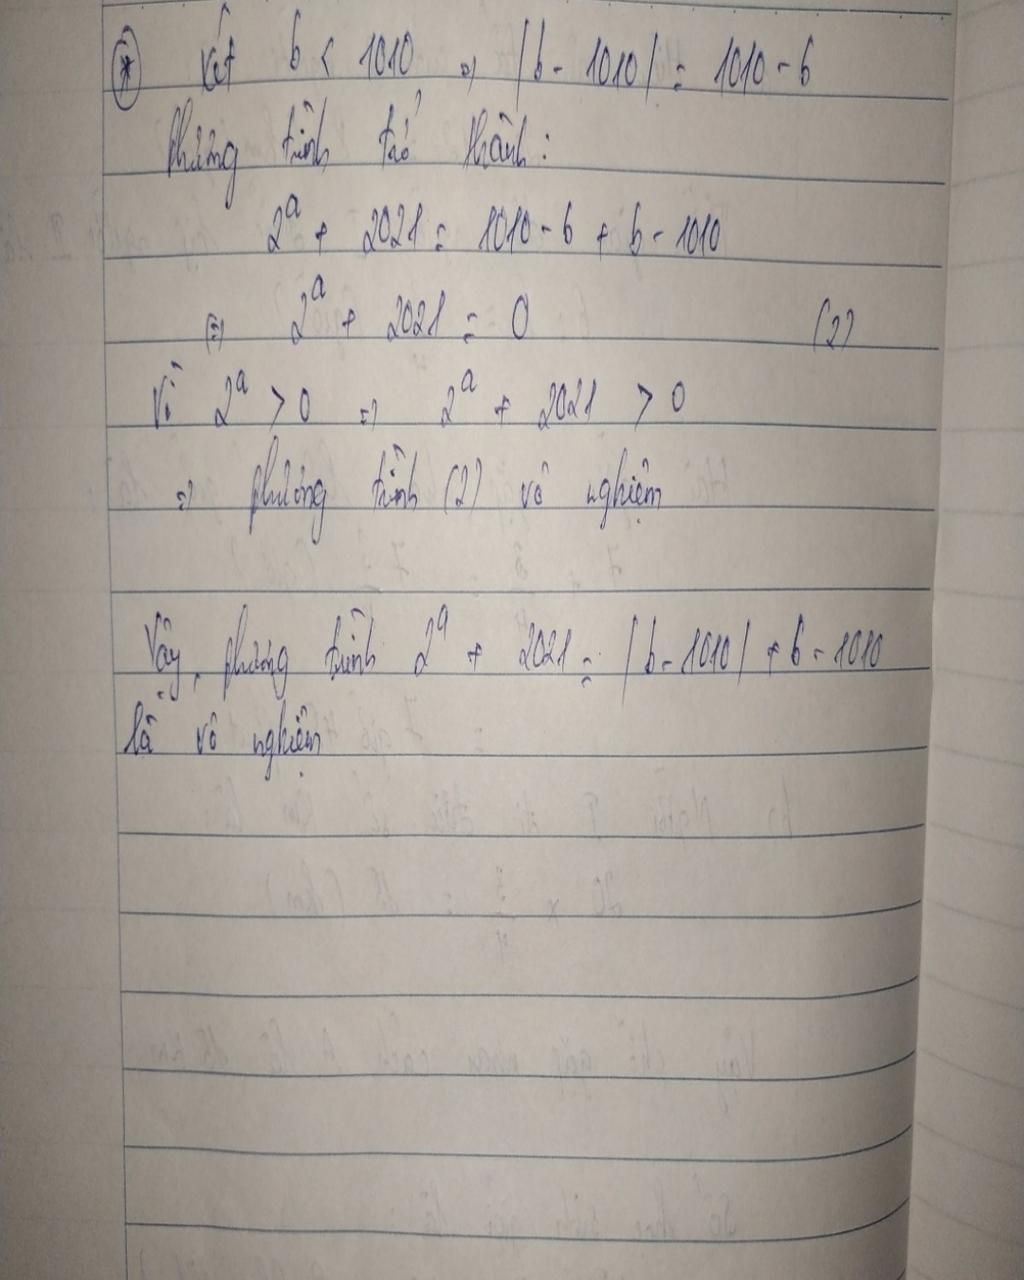 * Xét b < 1010 => |b - 1010| = 1010 - b
Phương trình trở thành:
2^a + 2021 = 1010 - b + b - 1010
(=) 2^a + 2021 = 0 (2)
Vì 2^a > 0 => 2^a + 2021 > 0
=> phương trình (2) vô nghiệm
Vậy, phương trình 2^a + 2021 = |b - 1010| + b - 1010
là vô nghiệm